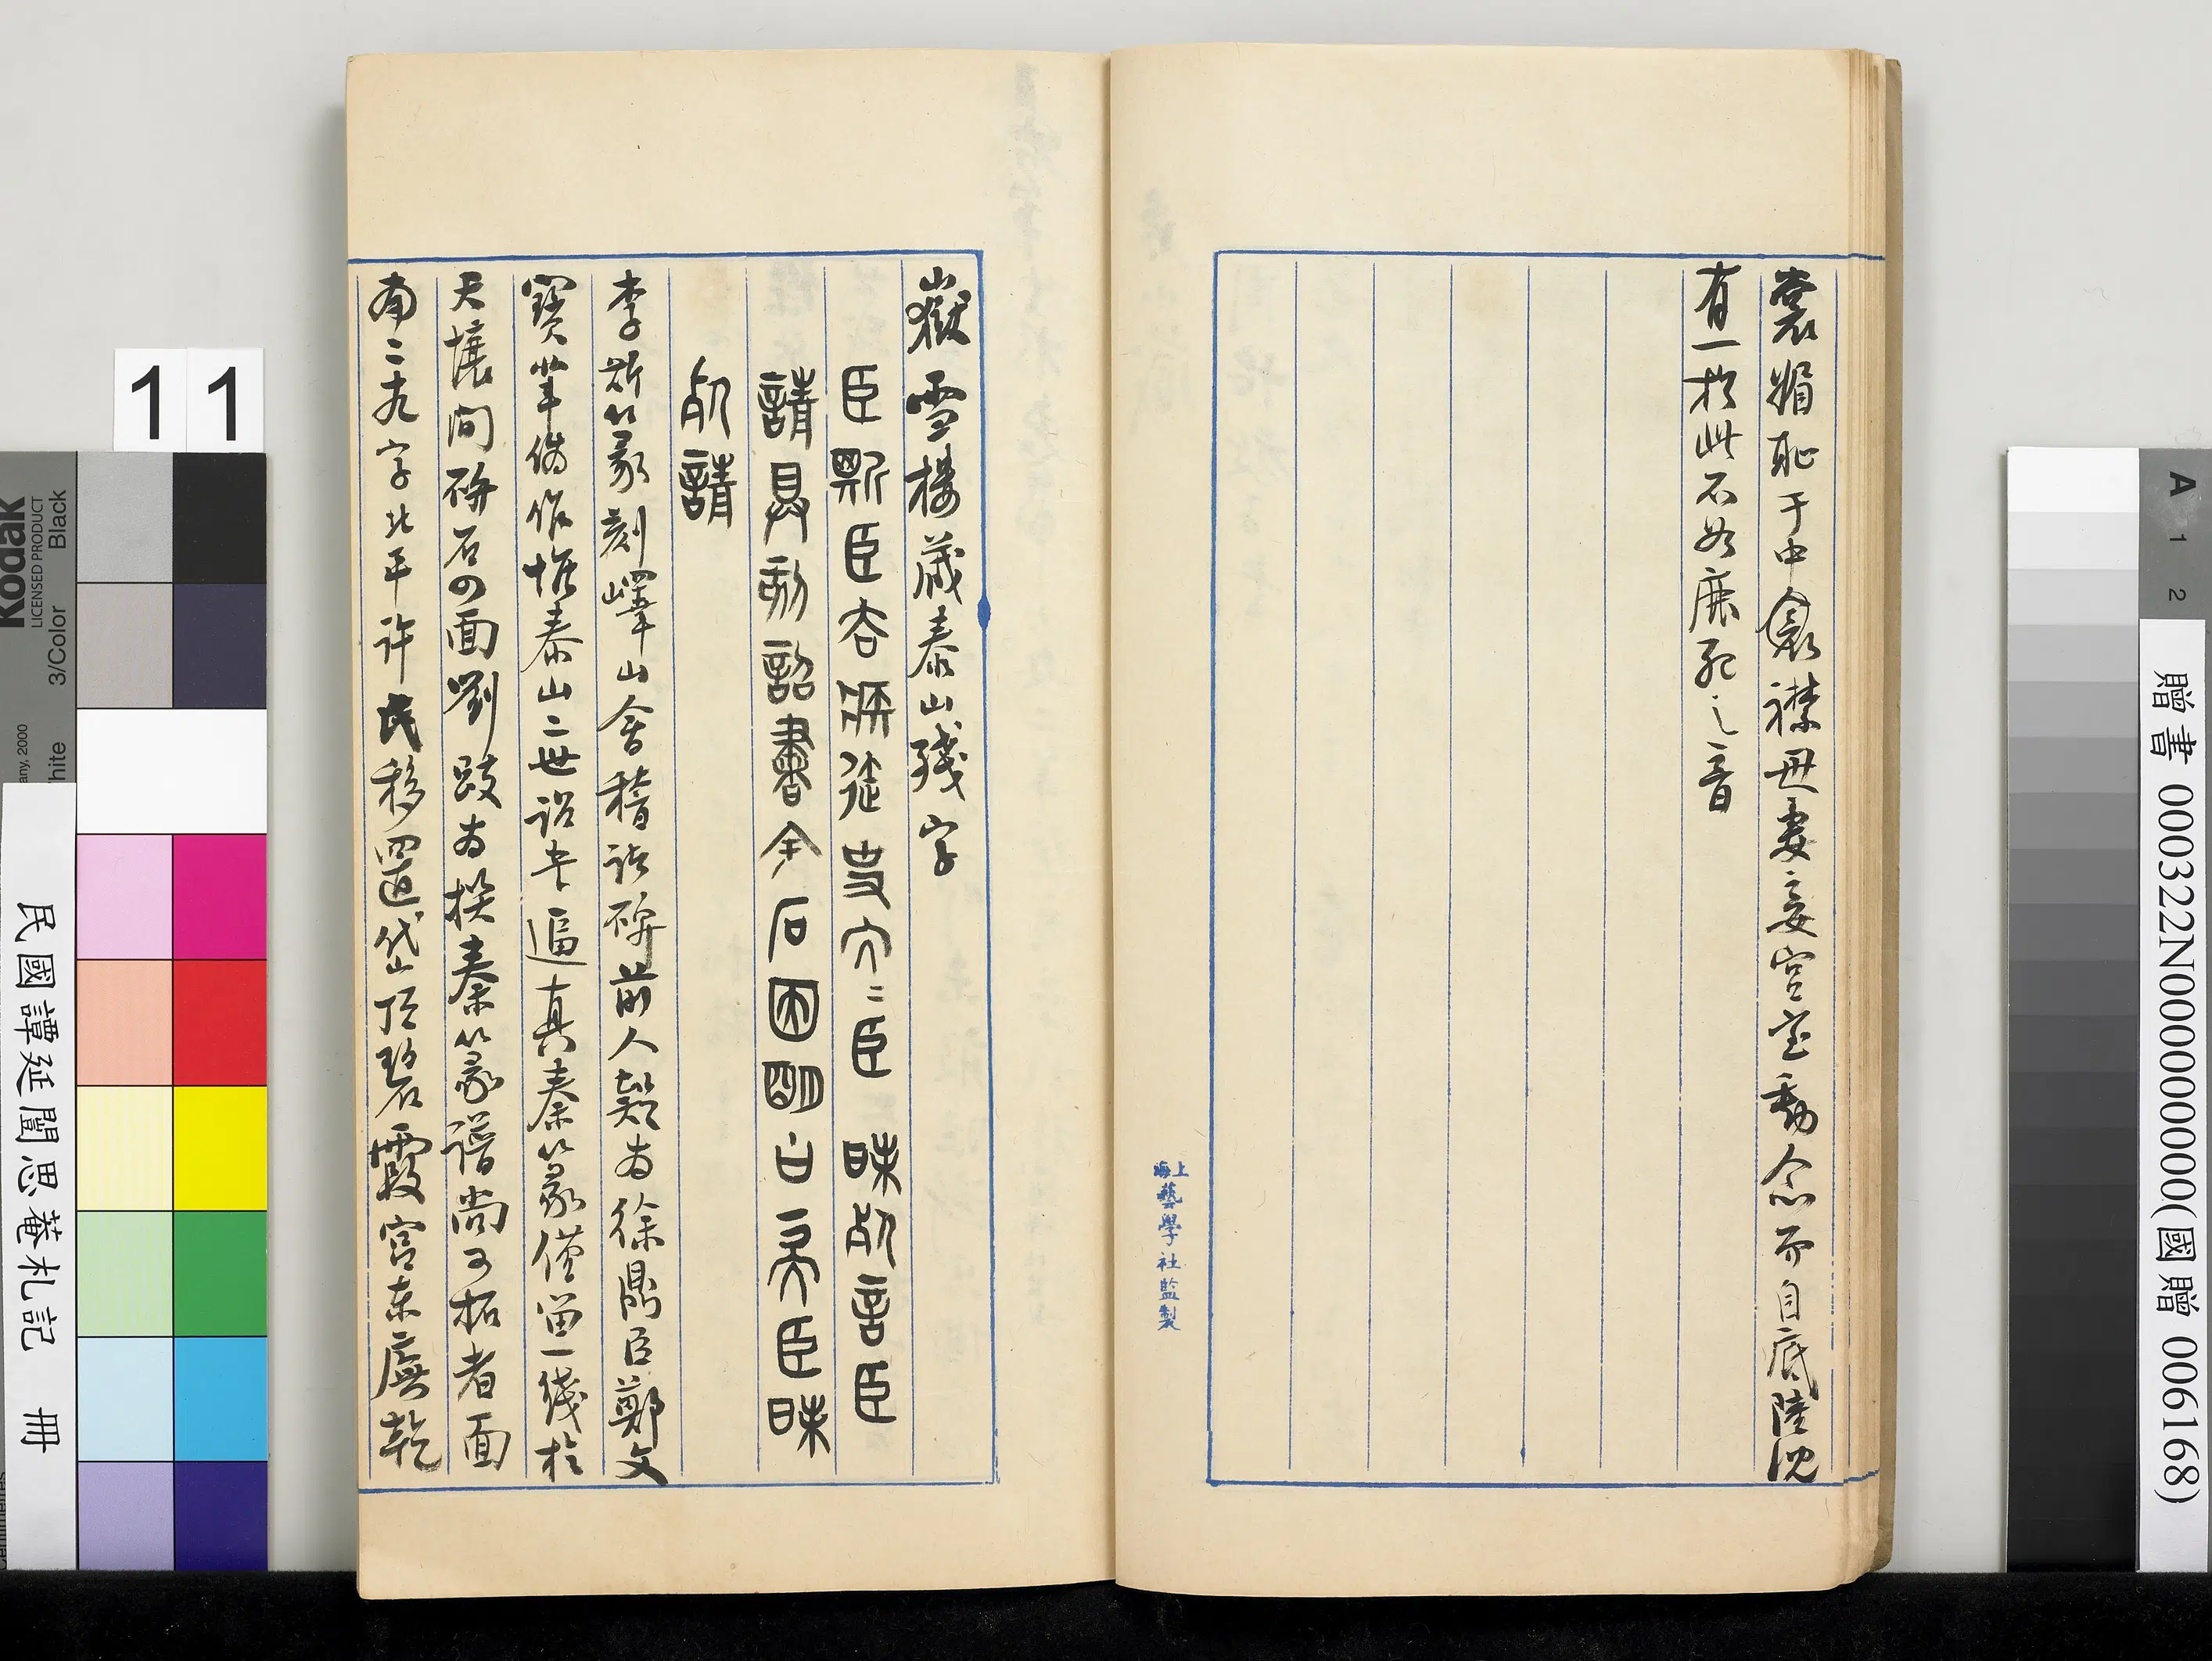 裳媚恥于中衾襟毋妻妾宮室動念而自底陸沈
有一於此不如廉死之音
上海藝學社監製
嶽雪樓藏泰山殘字
臣斯臣去疾御史夫二臣昧死言臣
請具刻詔書金石刻因明白矣臣昧
死請
李斯篆刻嶧山會稽諸碑前人疑為徐鼎臣鄭文
寶輩偽作惟泰山二世詔書逼真秦篆僅留一綫於
天壤間碑石四面劉跂為撰秦篆譜尚可拓者面
南二十九字北平許氏移置岱頂碧霞宮東廡乾
11
民國譚延闓思菴札記 冊
贈書 000322N000000000(國贈 006168)
Kodak
LICENSED PRODUCT
3/Color
Black
White
A 1 2